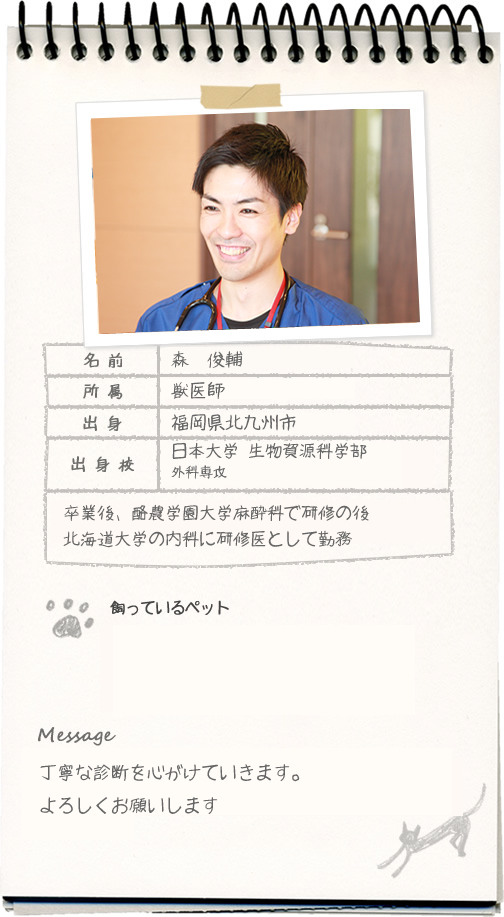 名前 森 俊輔
所属 獣医師
出身 福岡県北九州市
出身校 日本大学 生物資源科学部
外科専攻
卒業後、酪農学園大学麻酔科で研修の後
北海道大学の内科に研修医として勤務
飼っているペット
Message
丁寧な診断を心がけていきます。
よろしくお願いします